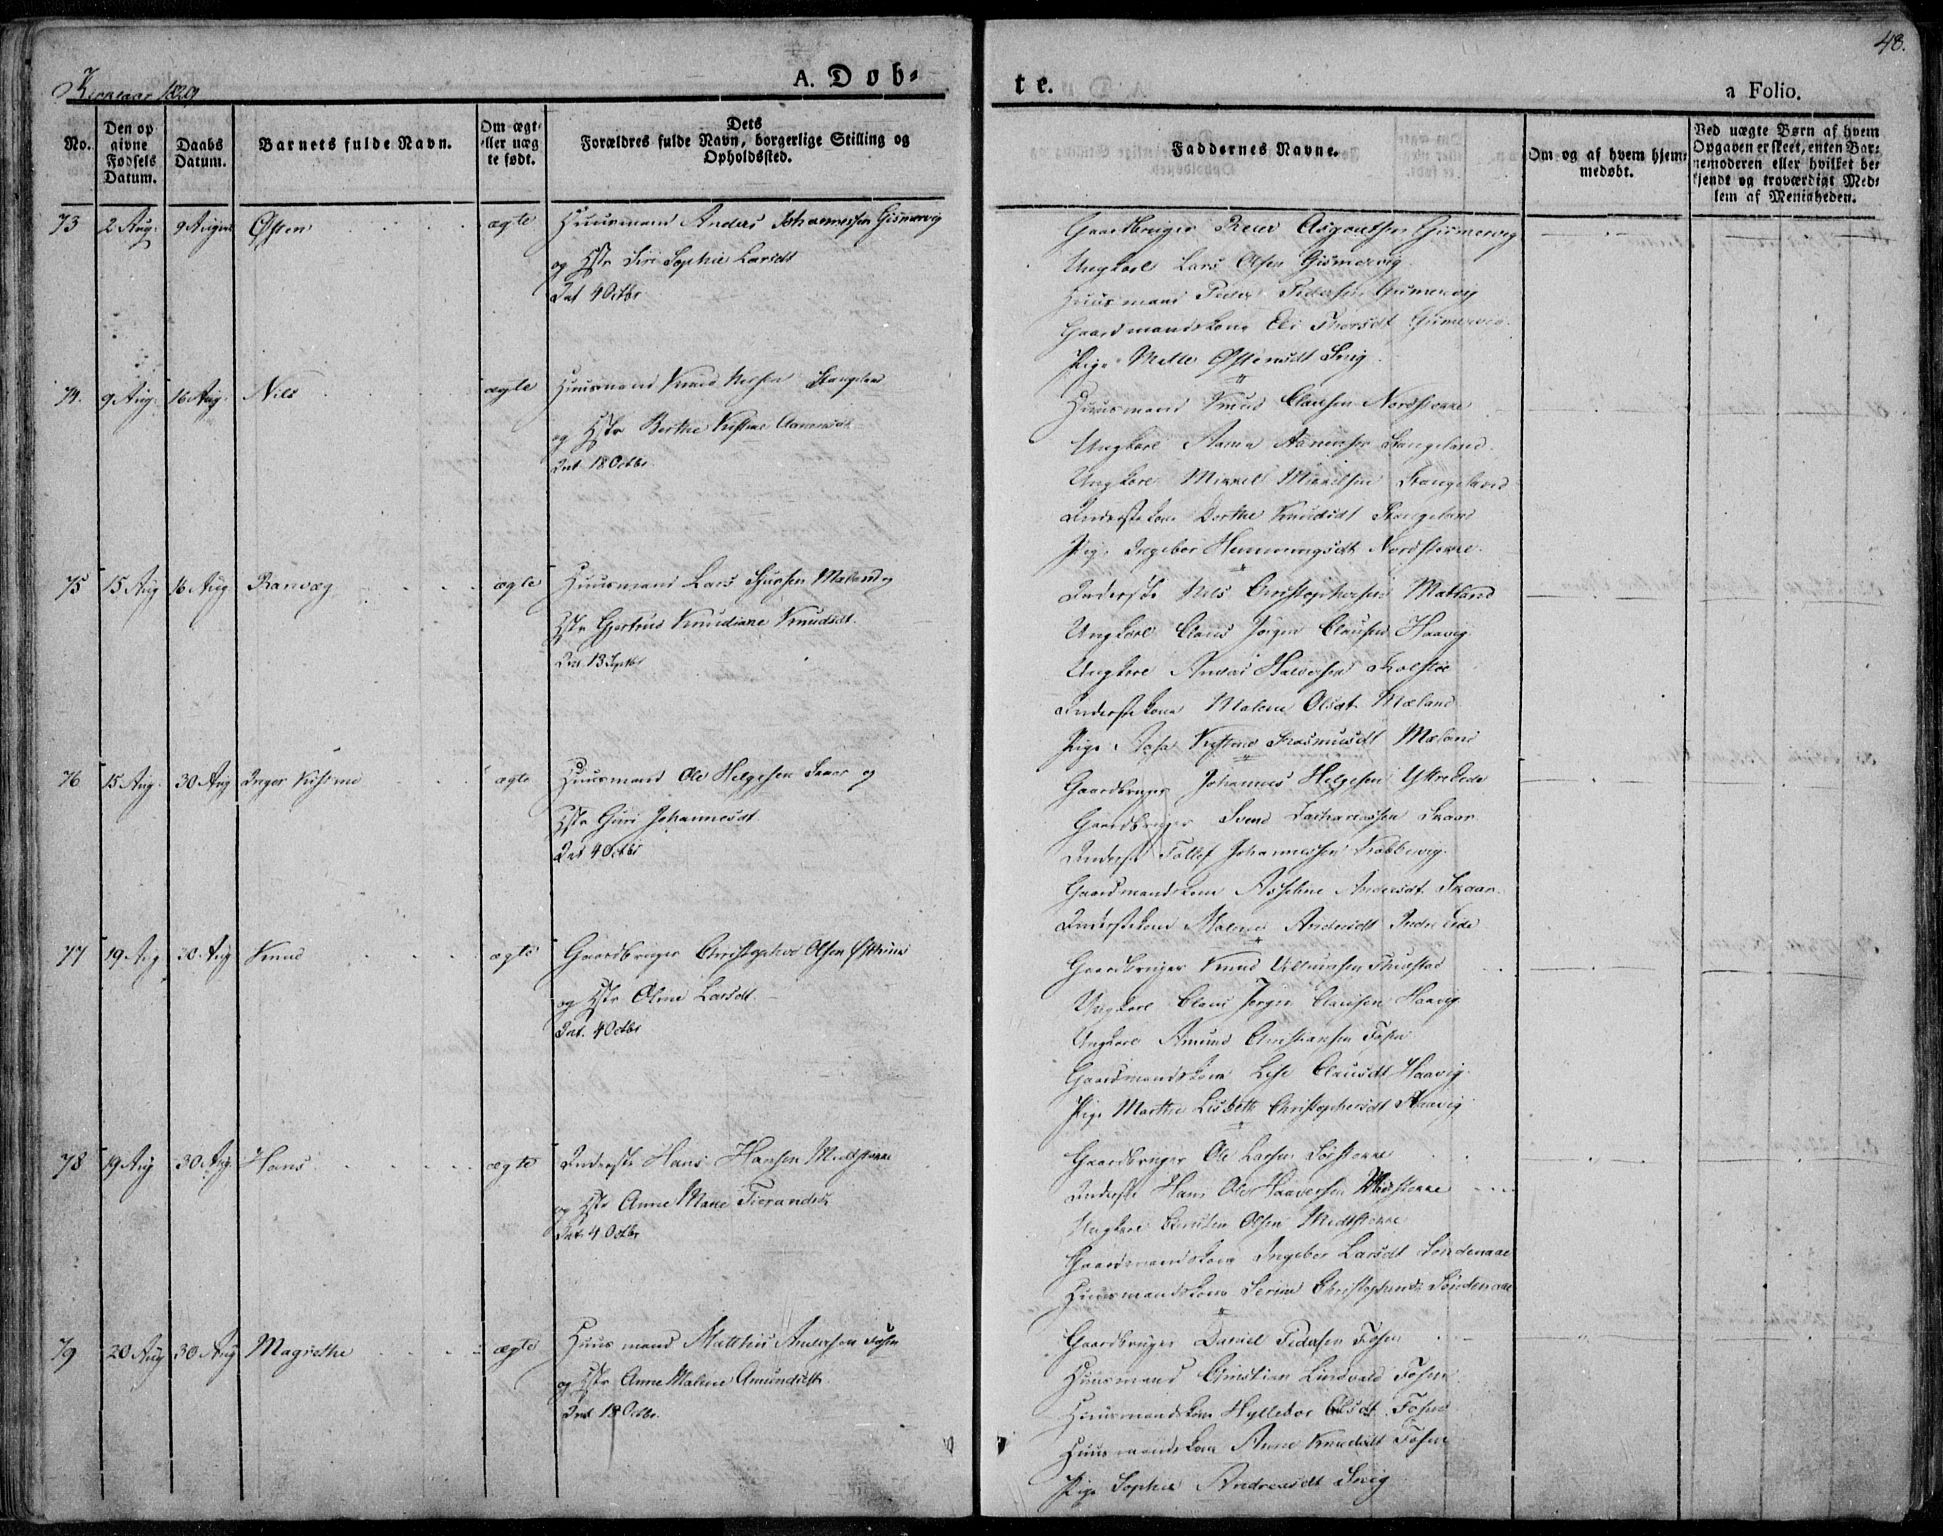 48.
Kirkeaar 1829
A. Døb-
te.
a Folio.
No.
Den op
givne
Fødsels
Datum.
Daabs
Datum.
Barnets fulde Navn.
Om ægt-
eller uæg
te født.
Dets
Forældres fulde Navn, borgerlige Stilling og
Opholdssted.
Faddernes Navne.
Om og af hvem hjem-
medøbt.
Ved uægte Børn af hvem
Opgaven er skeet, enten Bar-
nemoderen eller hvilket be-
kjendt og troværdigt Med-
lem af Menigheden.
73 2 Aug. 9 August Østen ægte Huusmand Anders Johannessen Gismervig
og Hstr Siri Sophie Larsdt
Int 4 Octbr
Gaardbruger Reier Asgoutsen Gismervig
Ungkarl Lars Olsen Gismervig
Huusmand Peder Pedersen Gismervig
Gaardmandskone Eli Thorsdt Gismervig
Pige Mette Østensdt Snig
74. 9 Aug. 16 Aug. Nils ægte Huusmand Knud Stangeland
og Hstr Berthe Kistine Aanensdt
Int 18 Octbr
Huusmand Knud Clausen Nordstokke
Ungkarl Aanen Aanensen Stangeland
Ungkarl Mikkel Mikkelsen Stangeland
Inderstekone Dorthe Knudsdt Stangeland
Pige Ingebor Henningsdt Nordstokke
75 15 Aug 16 Aug Ranvæg ægte Huusmand Lars Sjursen Mæland og
Hstr Gjertrud Knudiane Knudsdt.
Int 13 Septbr
Inderste Nils Christophersen Mæland
Ungkarl Claus Jørgen Clausen Haavig
Ungkarl Anders Halvorsen Kolstøe
Inderstekone Malene Olsdt Mæland
Pige Kistine Rasmusdt Mæland
76 15 Aug. 30 Aug Inger Kistine ægte Huusmand Ole Helgesen Skaar og
Hstr Guri Johannesdt
Int 4 Octbr
Gaardbruger Johannes Helgesen Ytreeide
Gaardbruger Svend Zachariassen Skaar
Inderste Tollef Johannessen Krabbevig
Gaardmandskone Asseline Andersdt Skaar
Inderstekone Malene Andersdt Indreeide
77 19 Aug 30 Aug Knud ægte Gaardbruger Christopher Olsen Østhuus
og Hstr Oline Larsdt
Int. 4 Octbr
Gaardbruger Knud Thuestad
Ungkarl Claus Jørgen Clausen Haavig
Ungkarl Amund Christiansen Fosen
Gaardmandskone Lise Clausdt Haavig
Pige Marthe Lisbeth Christophersdt Haavig
78 19 Aug 30 Aug. Hans ægte Inderste Hans Hansen Midtstokke
og Hstr Anne Marie Fierandsdt
Int. 4 Octbr
Gaardbruger Ole Larsen Sørstokke
Inderste Hans Ole Haaversen Midtstokke
Ungkarl Carsten Olsen Midtstokke
Gaardmandskone Ingebor Larsdt Søndenaae
Huusmandskone Serine Christophersdt Søndenaae
79 20 Aug 30 Aug Magrethe ægte Huusmand Matthis Andersen Fosen
og Hstr Anne Malene Amundsdt
Int 18 Octbr.
Gaardbruger Daniel Pedersen Fosen
Huusmand Christian Lindvald Fosen
Huusmandskone Hyllebor Olsdt Fosen
Huusmandskone Anne Knudsdt Fosen
Pige Sophie Andreasdt Snig